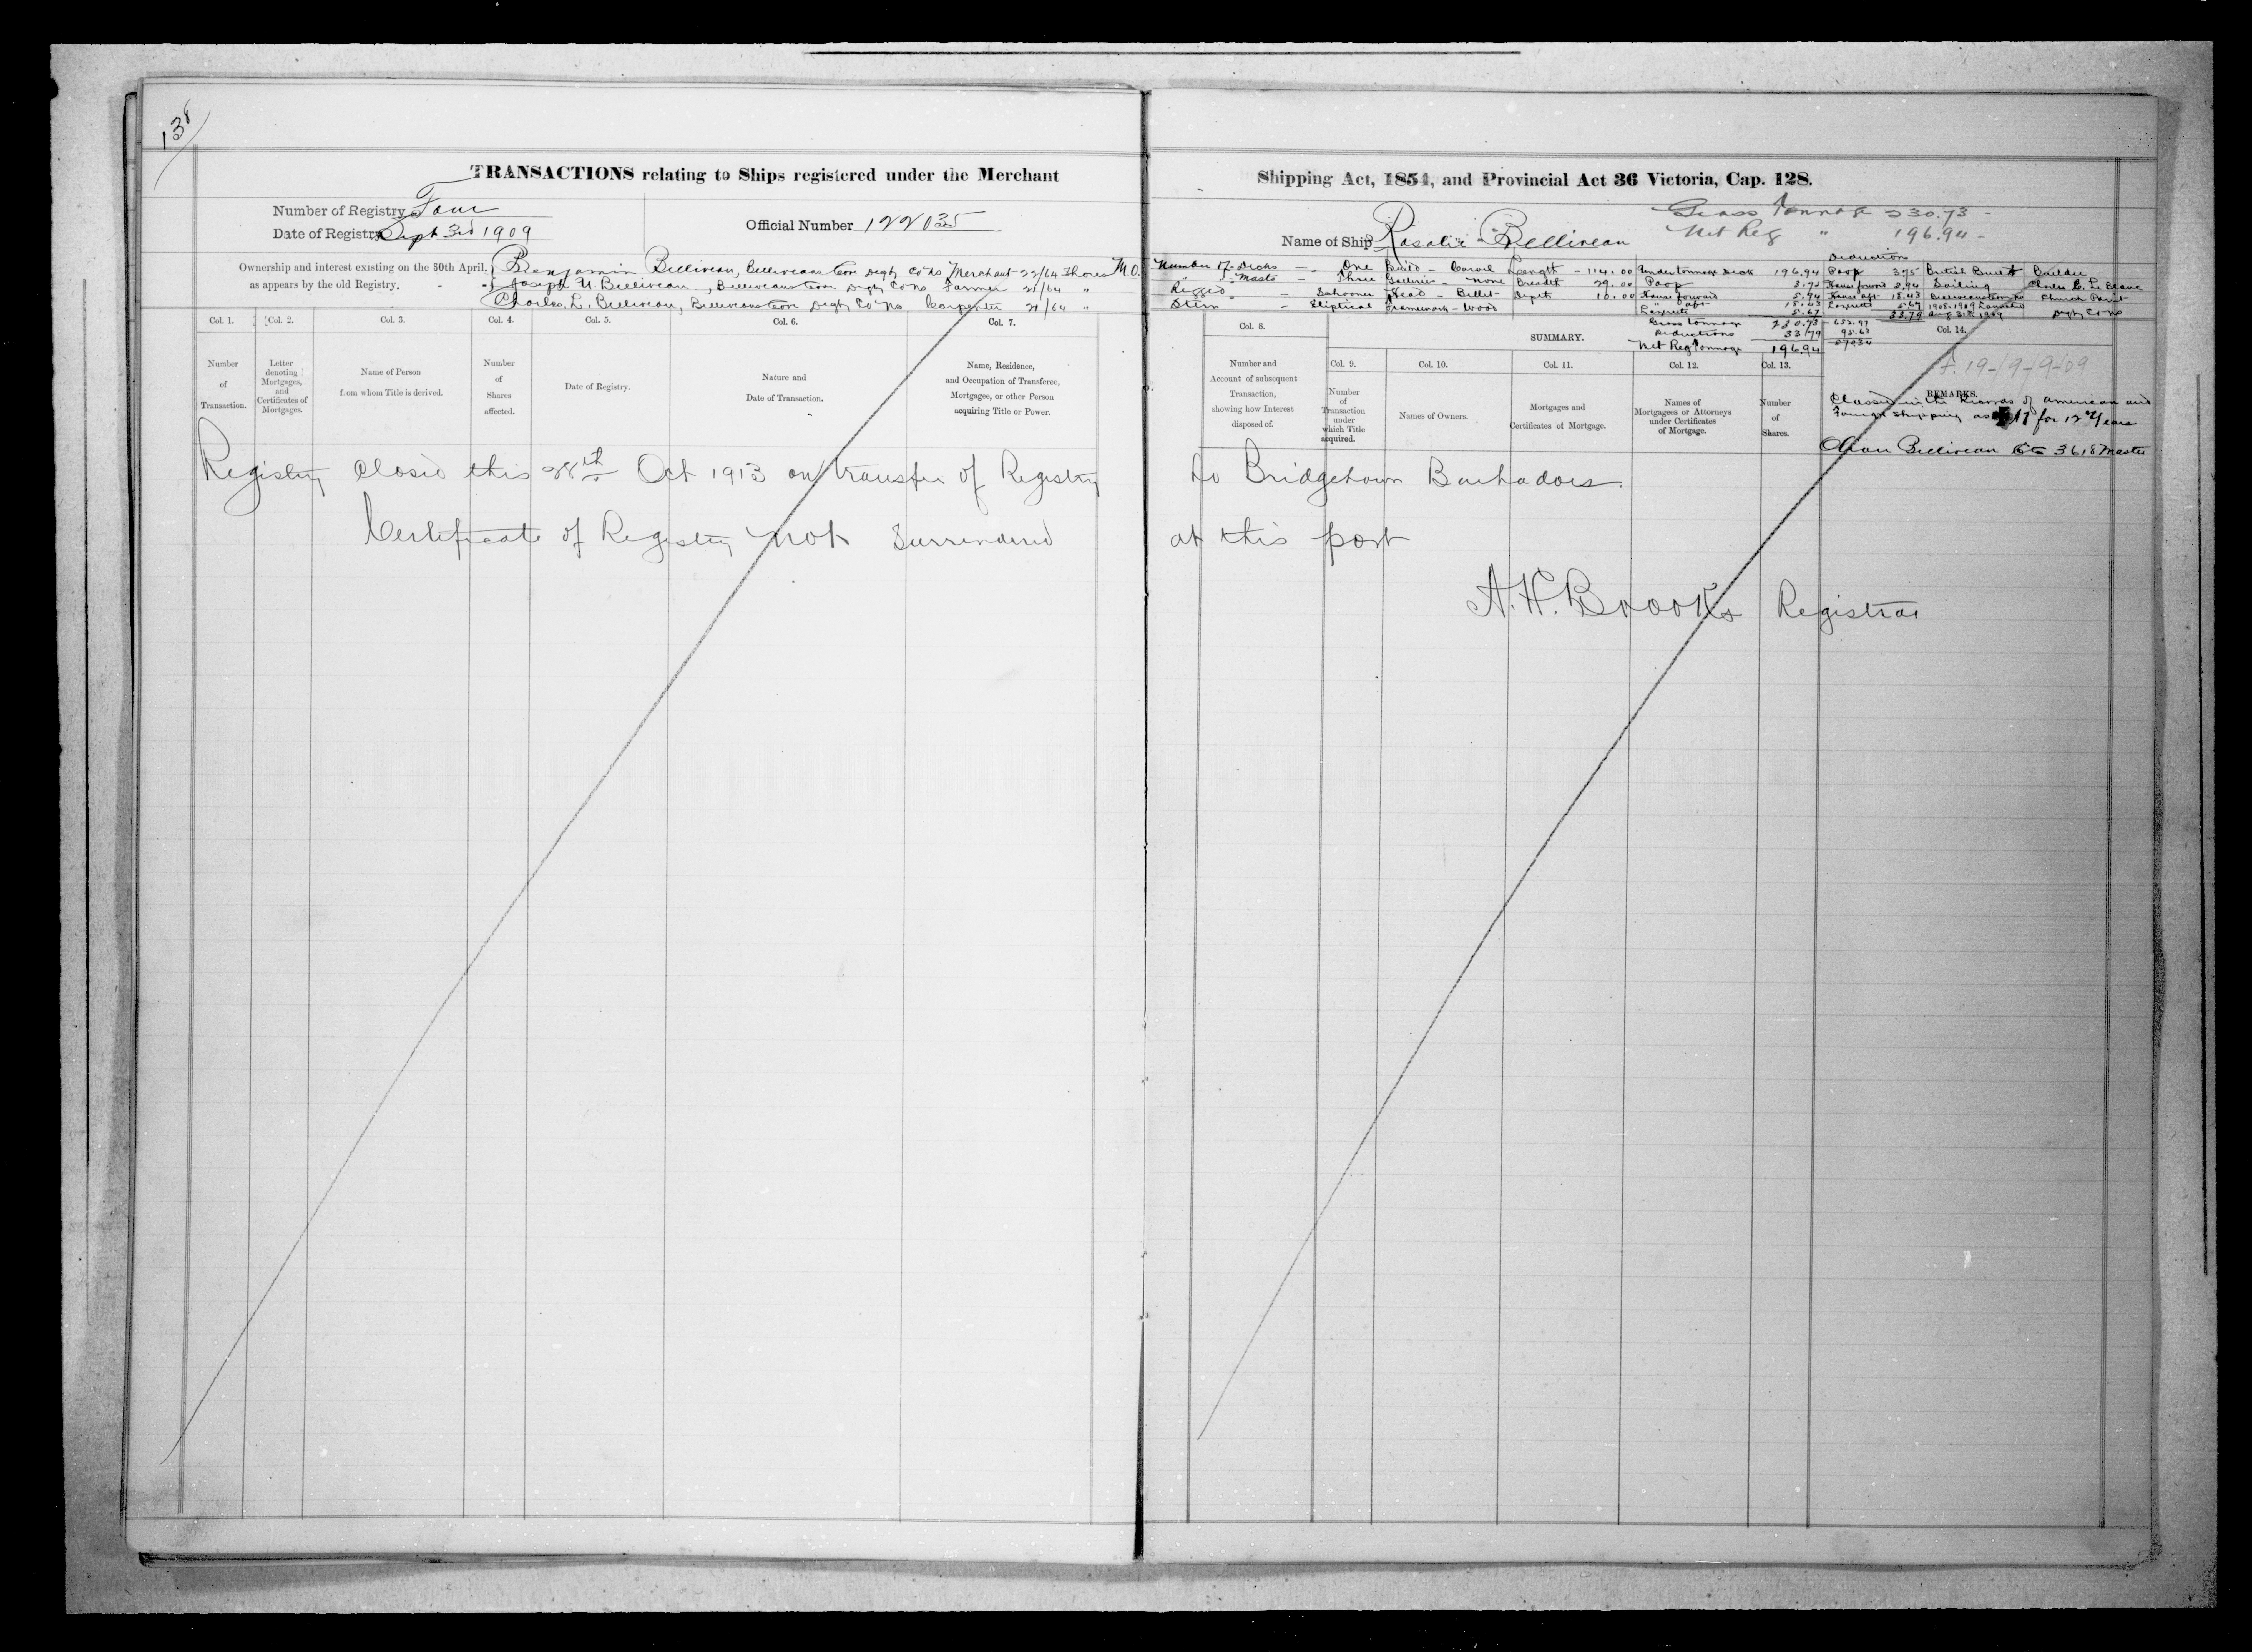 138
TRANSACTIONS relating to Ships registered under the Merchant
Number of Registry Four
Date of Registry Sept 3rd 1909
Official Number 122035
Ownership and interest existing on the 30th April,
as appears by the old Registry.
Benjamin Belliveau, Belliveaus Cove Digby Co NS Merchant 22/64 Shares M.O.
Joseph N. Belliveau, Belliveaus Cove Digby Co NS Farmer 21/64 "
Charles L. Belliveau, Belliveaus Cove Digby Co NS Carpenter 21/64 "
Col. 1. Col. 2. Col. 3. Col. 4. Col. 5. Col. 6. Col. 7.
Number of Transaction.
Letter denoting Mortgages, and Certificates of Mortgages.
Name of Person from whom Title is derived.
Number of Shares affected.
Date of Registry.
Nature and Date of Transaction.
Name, Residence, and Occupation of Transferee, Mortgagee, or other Person acquiring Title or Power.
Registry Closed this 28th Oct 1913 on transfer of Registry
Certificate of Registry not Surrendered
Shipping Act, 1854, and Provincial Act 36 Victoria, Cap. 128.
Name of Ship Rosalie Belliveau
Gross Tonnage 230.73
Net Reg " 196.94
Number of Decks - One Build - Carvel Length - 114.00 Under tonnage Deck 196.94
" " Masts - Three Galleries - none Breadth 29.00 Poop 3.75
Rigged - Schooner Head - Billet Depth 10.00 House forward 5.94
Stern - Eliptical Framework - Wood " aft 18.43
5.67
Gross tonnage 230.73
Deductions 33.79
Net Reg Tonnage 196.94
Deductions
Poop 3.75
House forward 5.94
House aft 18.43
5.67
33.79
British Built
Sailing
Belliveaus Cove NS
1908-1909 Launched
Aug 31st 1909
Builder
Charles E. LeBlanc
Church Point
Digby Co NS
653.97
95.63
Col. 8.
SUMMARY.
Col. 14.
Number and Account of subsequent Transaction, showing how Interest disposed of.
Col. 9. Col. 10. Col. 11. Col. 12. Col. 13.
Number of Transaction under which Title acquired.
Names of Owners.
Mortgages and Certificates of Mortgage.
Names of Mortgagees or Attorneys under Certificates of Mortgage.
Number of Shares.
F. 19-/9-9-09
REMARKS.
Classed in the Record of American and
Foreign Shipping as A1 for 12 Years
Belliveau 3618 Master
to Bridgetown Barbados.
at this port
A.H. Brooks Registrar